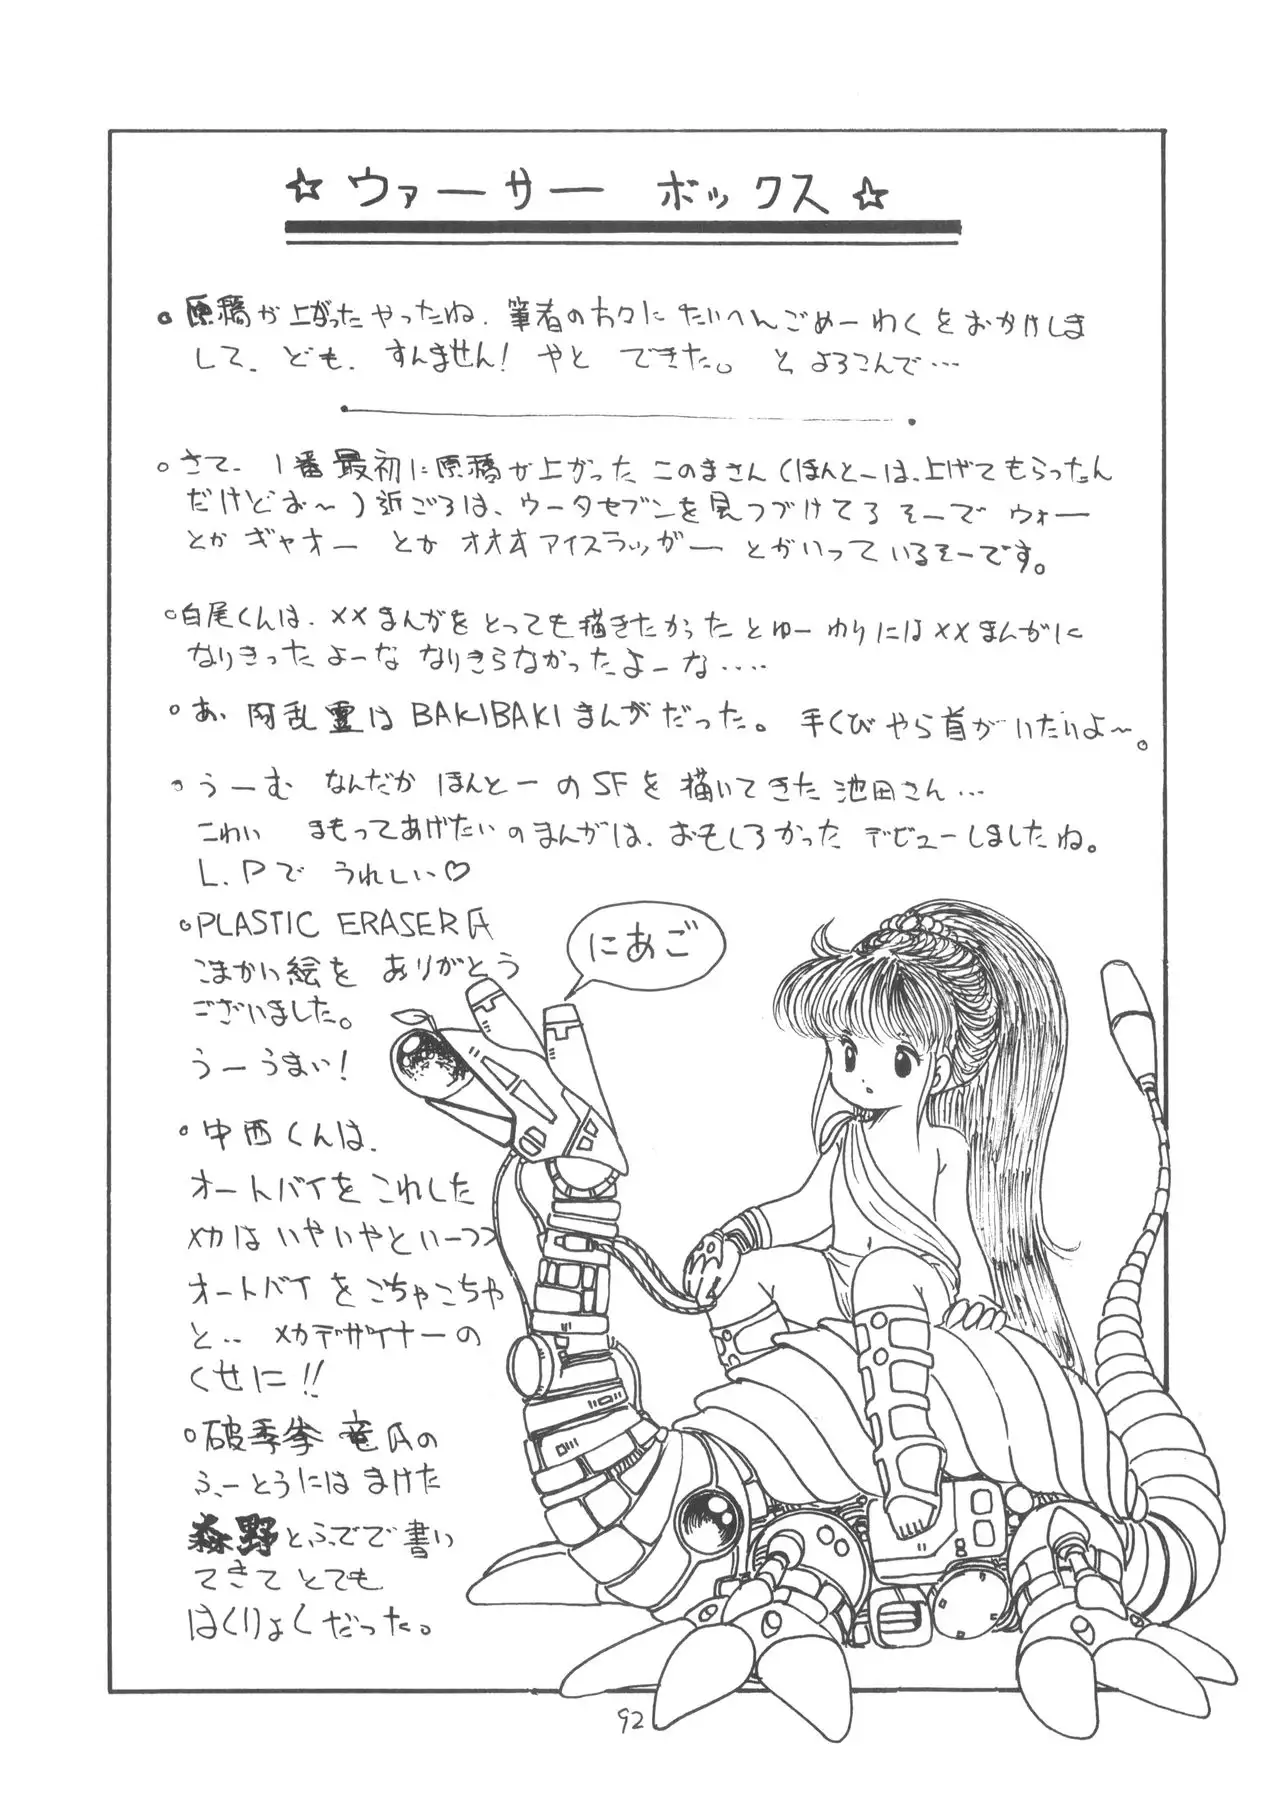 ☆ ウァーサー ボックス ☆
○原稿が上がったやったね、筆者の方々にたいへんごめーわくをおかけしま
して、ども、すんません! やと できた。 とよろこんで…
○さて、1番最初に原稿が上がったこのまさん(ほんとーは、上げてもらったん
だけどお〜)近ごろは、ウータセブンを見つづけてるそーでウォー
とかギャオー とか オオオアイスラッガー とかいっているそーです。
○白尾くんは、××まんがをとっても描きたかったとゆーわりには××まんがに
なりきったよーな なりきらなかったよーな‥‥
○あ、阿乱霊はBAKIBAKIまんがだった。 手くびやら首がいたいよ〜。
○うーむ なんだか ほんとーのSFを描いてきた池田さん…
こわい まもってあげたいのまんがは、おもしろかった デビューしましたね。
L.Pで うれしい♡
○PLASTIC ERASER氏
こまかい絵を ありがとう
ございました。
うーうまい!
にあご
○中西くんは、
オートバイをこれした
メカはいやいやといーつつ
オートバイをごちゃこちゃ
と‥ メカデザイナーの
くせに!!
○破季拳 竜氏の
ふーとうにはまけた
森野とふでで書い
てきてとても
はくりょくだった。
92